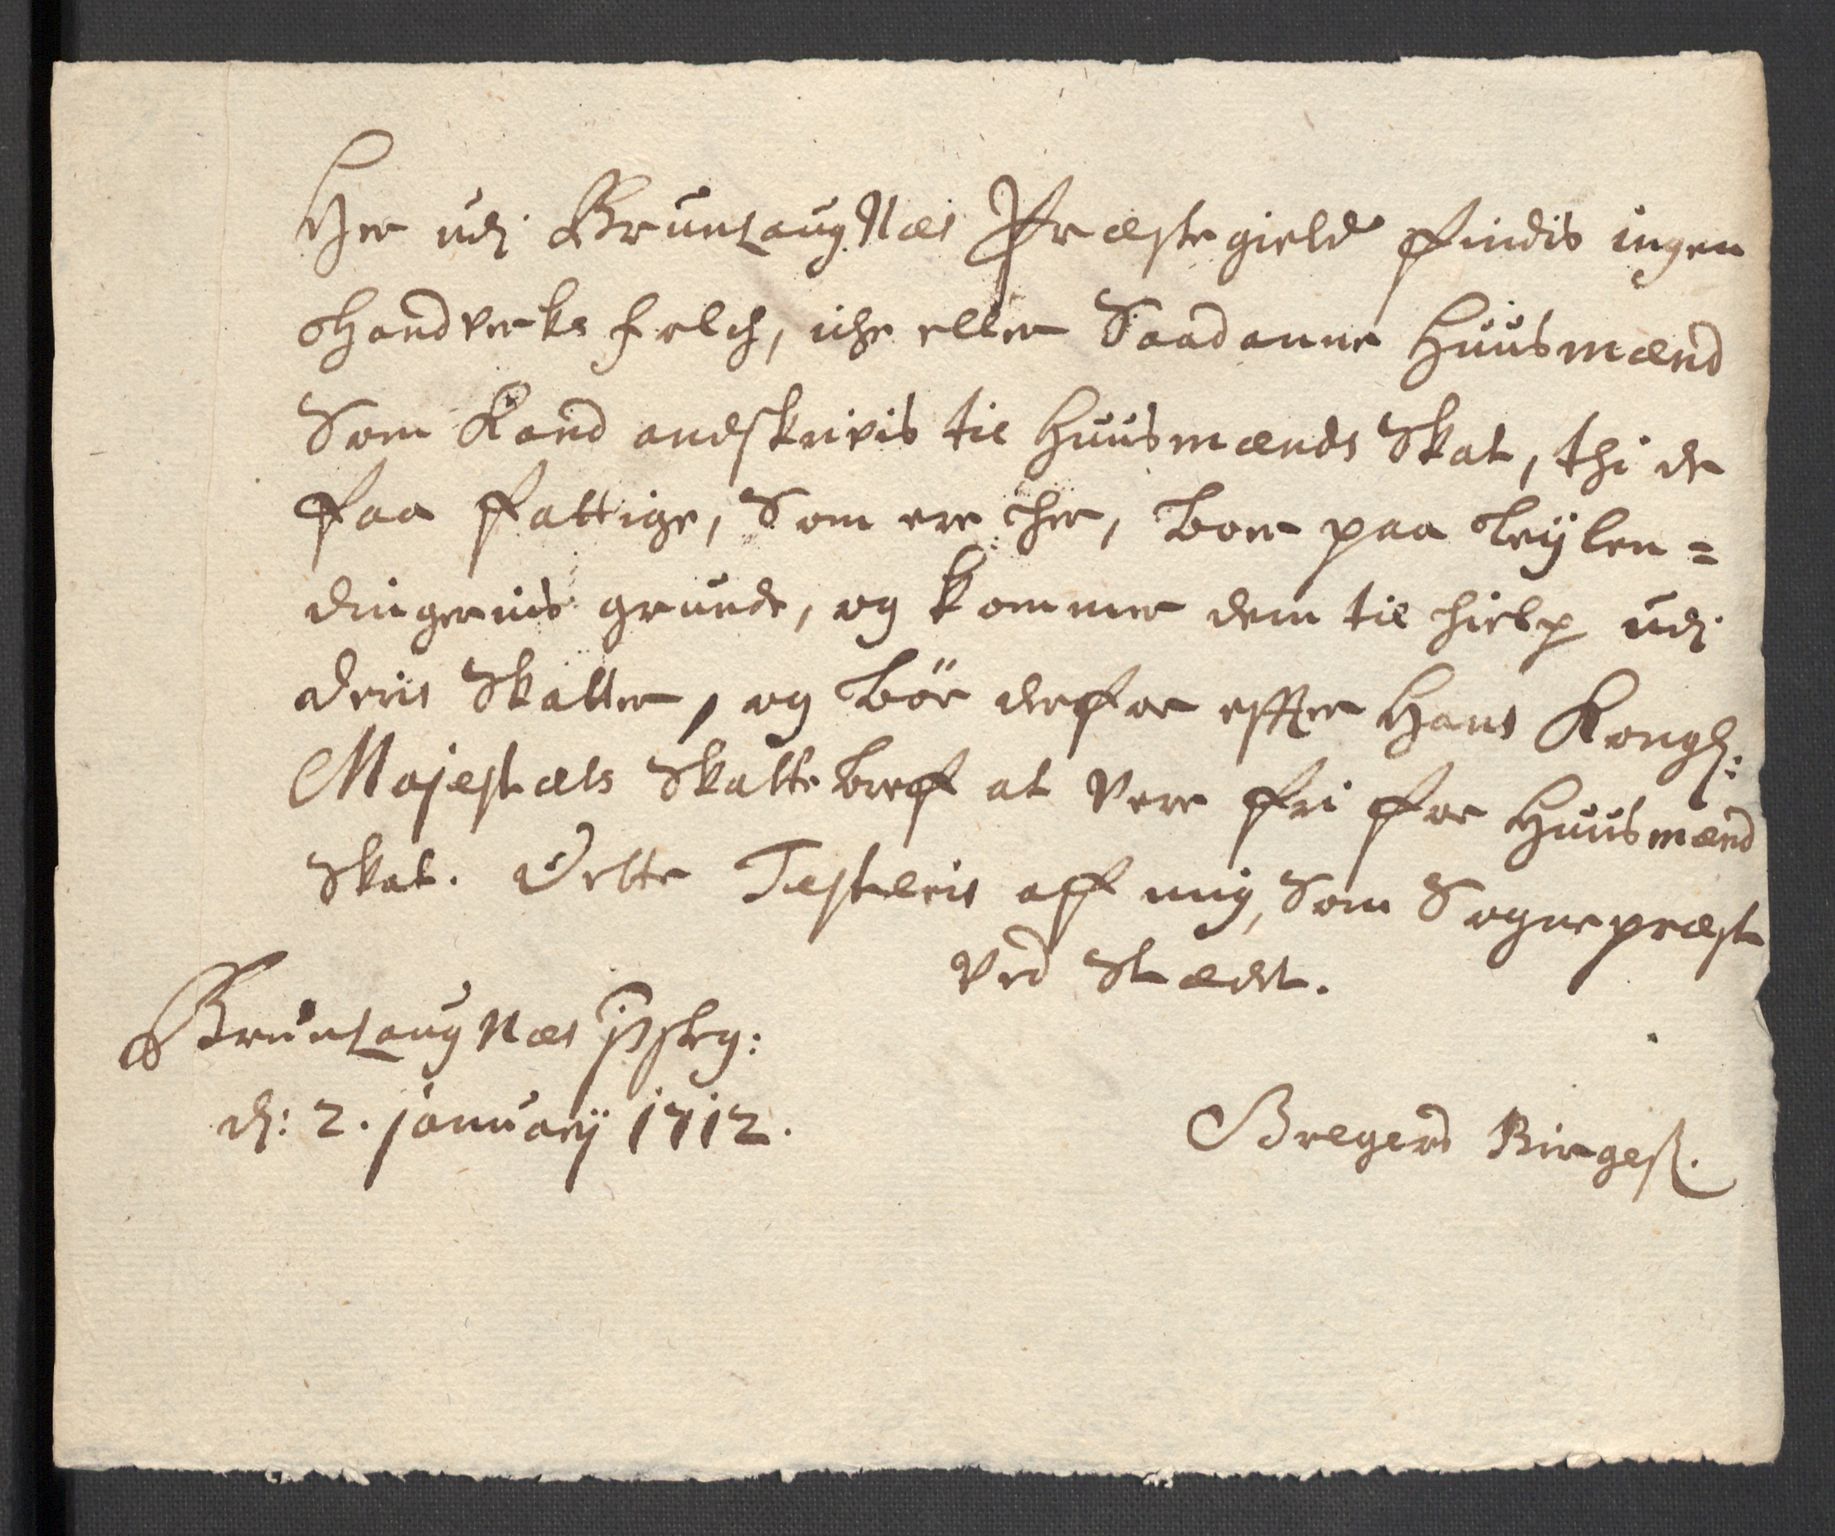 Her udj Brunlaug Næs Præstegield findis ingen
Handverks folch, iche eller Saadanne Huusmænd
Som Kand andskrivis til Huusmænds Skat, thi de
faa fattige, Som ere her, boer paa Leÿlen=
dingernis grunde, og kommer dem til hielp udj
deris Skatter, og bör derfor effter Hans Kongl:
Majestæts Skattebref at være fri for Huusmænd
Skat. Dette Testeris aff mig, Som Sognepræst
ved Stædet.
Brunlaug Næs Pstg:
d: 2. januarÿ 1712.
Bregerd Birges.